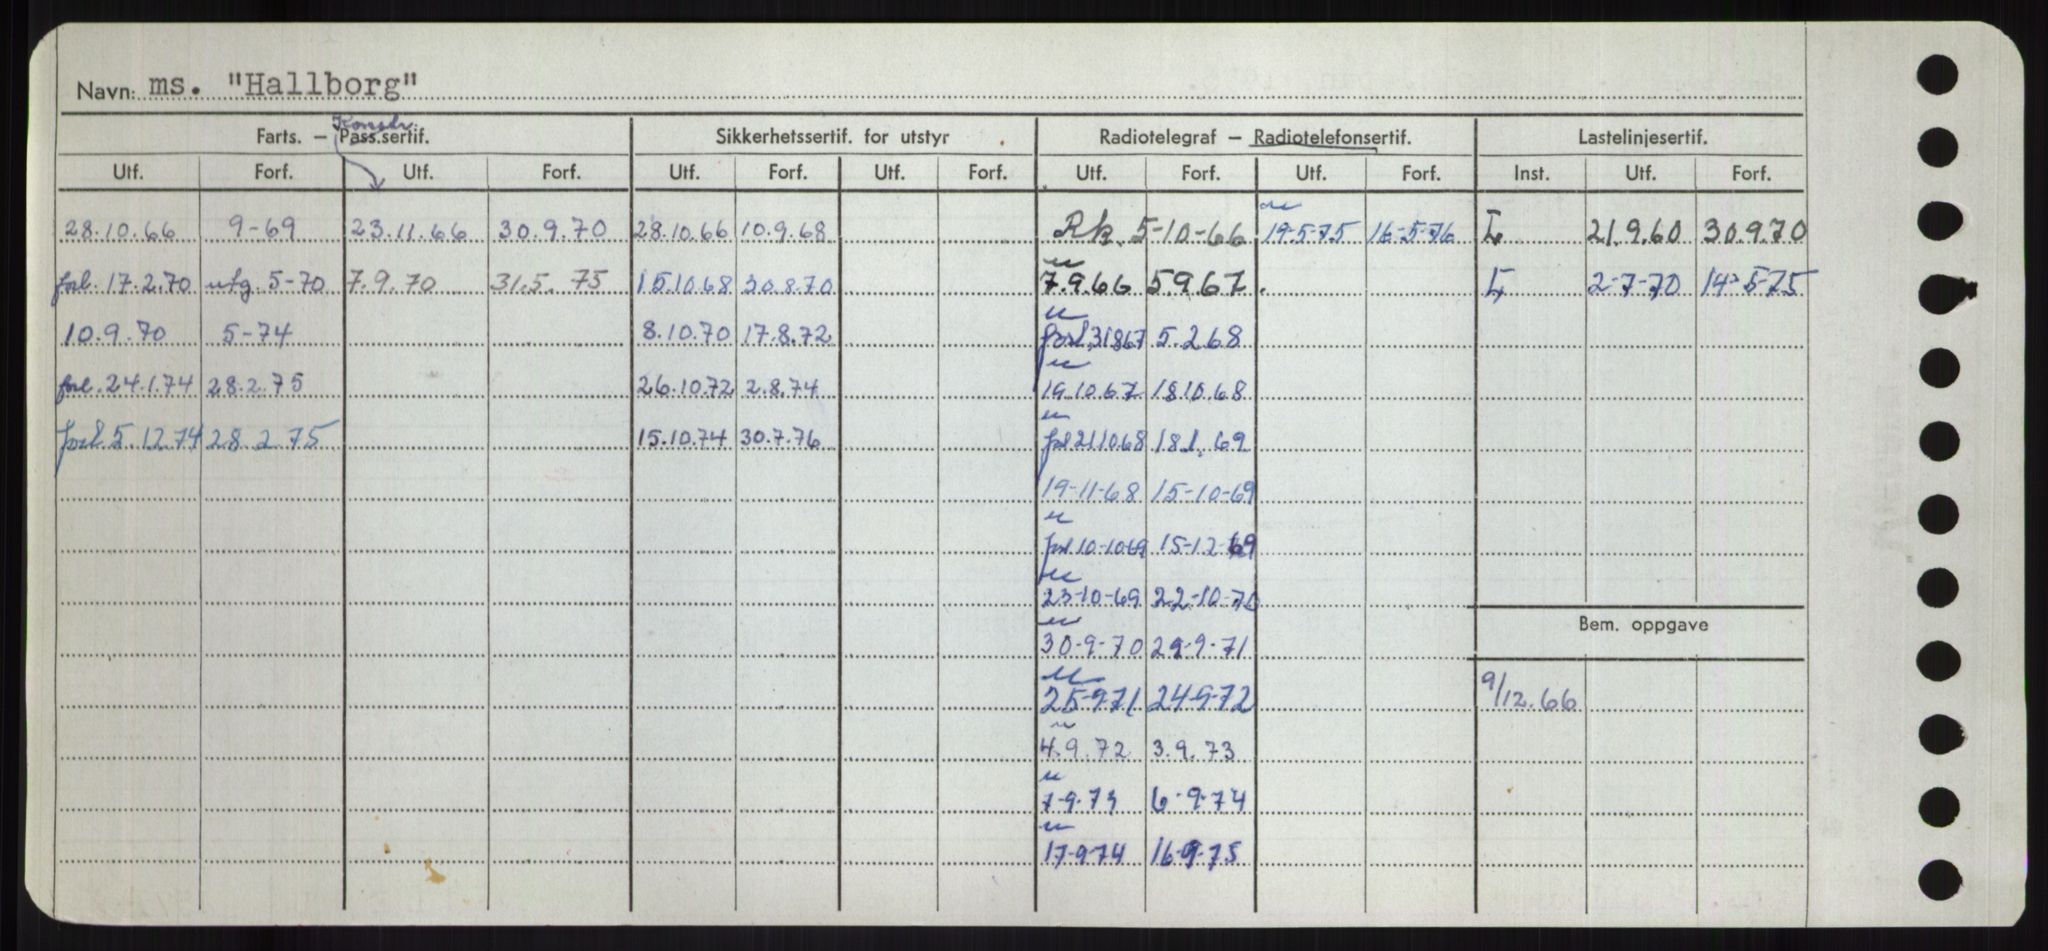 Navn: ms. "Hallborg"
Konstr.
Farts. – Pass.sertif. Sikkerhetssertif. for utstyr Radiotelegraf – Radiotelefonsertif. Lastelinjesertif.
Utf. Forf. Utf. Forf. Utf. Forf. Utf. Forf. Utf. Forf. Utf. Forf. Inst. Utf. Forf.
28.10.66 9-69 23.11.66 30.9.70 28.10.66 10.9.68 Rk. 5-10-66 19-5-75 16-5-76 L 21.9.60 30.9.70
forl. 17.2.70 utg. 5-70 7.9.70 31.5.75 15.10.68 30.8.70 7.9.66 5.9.67. L 2-7-70 14-5-75
10.9.70 5-74 8.10.70 17.8.72 forl 31.8.67 5.2.68
forl. 24.1.74 28.2.75 26.10.72 2.8.74 19.10.67 18.10.68
forl. 5.12.74 28.2.75 15.10.74 30.7.76 forl 21.10.68 18.1.69
19-11-68 15-10-69
forl 10-10-69 15-12-69
23-10-69 22-10-70
Bem. oppgave
30-9-70 29-9-71
25-9-71 24-9-72 9/12.66
4.9.72 3.9.73
7-9-73 6-9-74
17-9-74 16-9-75